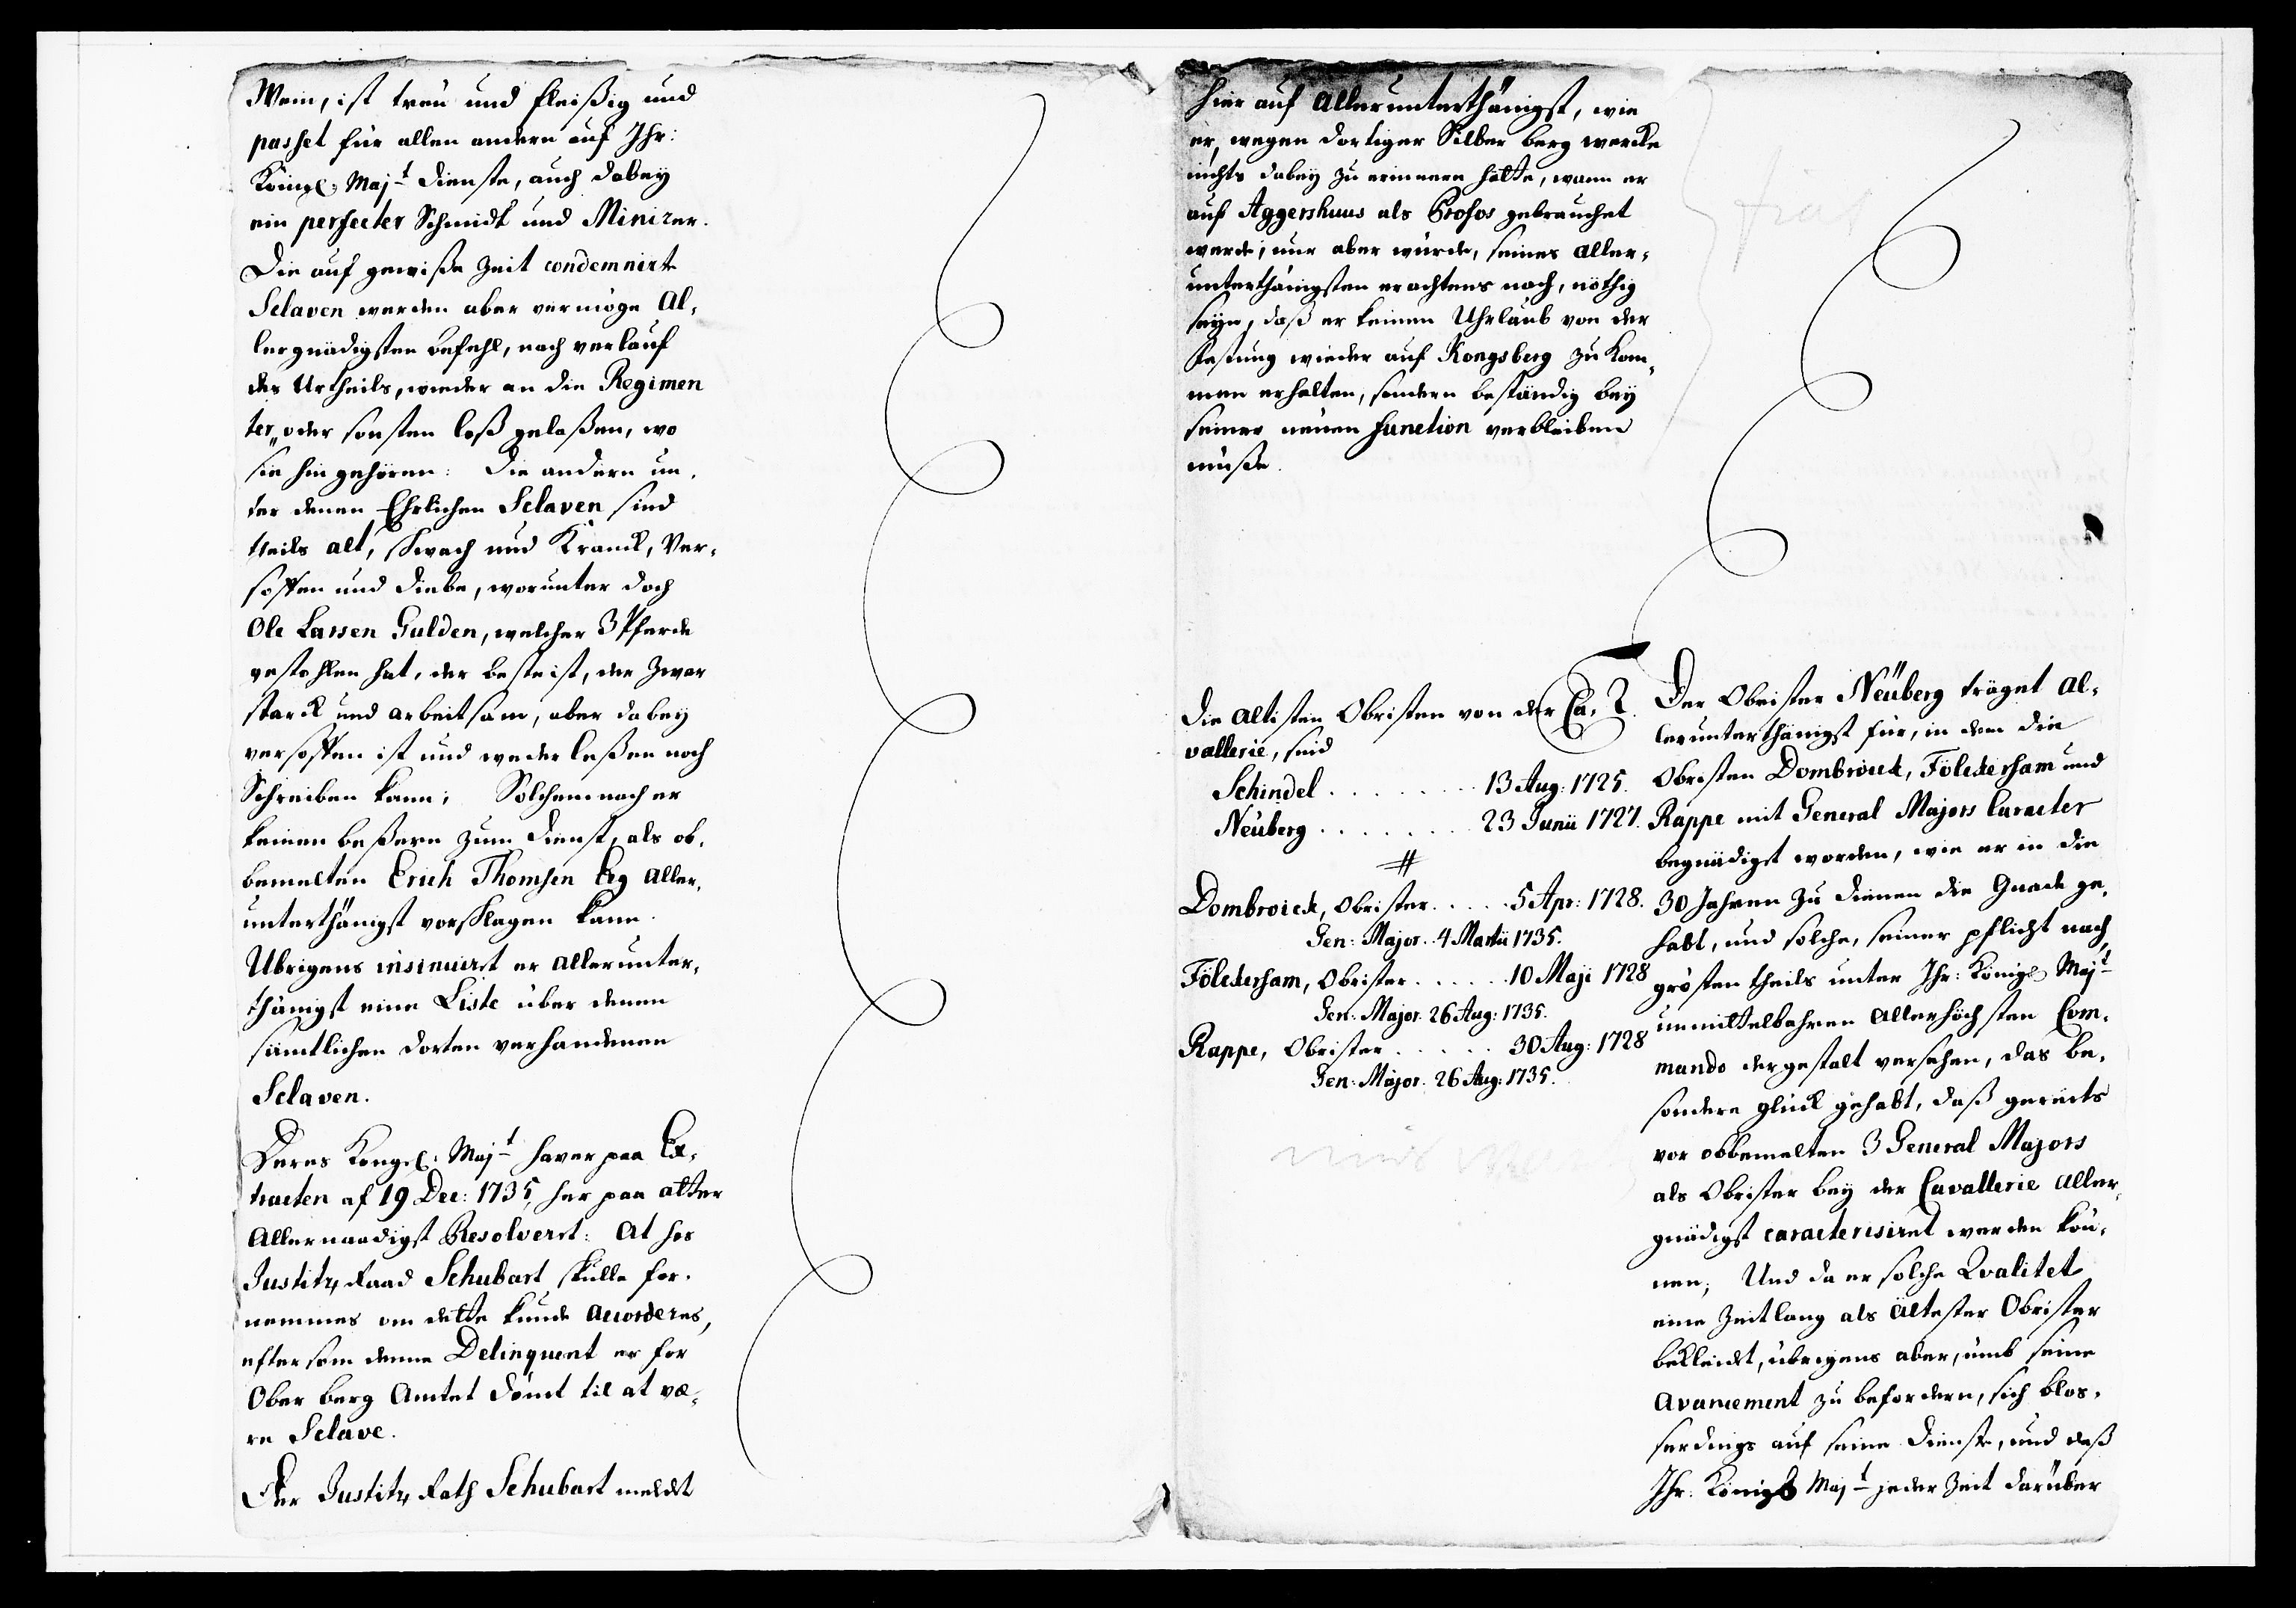 Wein, ist treu und fleißig und
passet für allen andern auf Ihr:
Königl: Majt Dienste, auch dabey
ein perfecter Schmidt und Minirer.
Die auf gewiße Zeit condemnirte
Sclaven werden aber vermöge Al-
lergnädigsten befehl, nach verlauf
des Urtheils, wieder an die Regimen
ter, oder sonsten loß gelaßen, wo
sie hin gehören: Die andern un-
ter denen Ehrlichen Sclaven sind
theils alt, schwach und Kranck, Ver-
soffen und Diebe, worunter doch
Ole Larsen Gulden, welcher 3 Pferde
gestohlen hat, der beste ist, der Zwar
starck und arbeitsam, aber dabey
versoffen ist und weder leßen noch
Schreiben kann; Solchemnach er
keinen beßern zum Dienst, als ob-
bemelten Erich Thomsen Erg aller-
unterthänigst vorschlagen kann.
Übrigens insinuirt er allerunter-
thänigst eine Liste über denen
sämtlichen dorten verhandenen
Sclaven.
Deres Kongel: Majt haver paa Ex-
tracten af 19 Dec: 1735, her paa atter
Allernaadigst Resolveret: At hos
Justitz Raad Schubart skulle for-
nemmes om dette kunde accorderes,
eftersom denne Delinquent er for
Ober berg Amtet dömt til at væ-
re Sclave.
Der Justitz Rath Schubart meldet
hier auf allerunterthänigst, wie
er, wegen dortiger Silber berg wercke
nichts dabey zu erinnern hätte, wann er
auf Aggershuus als Profos gebrauchet
werde; nur aber würde, seines aller-
unterthänigsten erachtens nach, nöthig
seyn, daß er keinen Uhrlaub von der
Festung wieder auf Kongsberg zu kom-
men erhalten, sondern beständig bey
seiner neuen function verbleiben
müße.
fiat
Die altisten Obristen von der Ca-
vallerie, seind
Schindel . . . . . . . . 13 Aug: 1725.
Neuberg . . . . . . . 23 Junii 1727.
#
Dombroick, Obrister. . . . . 5 Apr: 1728.
Gen: Major. 4 Martii 1735.
Fölckersham, Obrister . . . . . . 10 Maji 1728
Gen: Major. 26 Aug: 1735.
Rappe, Obrister . . . . . 30 Aug: 1728
Gen: Major. 26 Aug: 1735.
Der Obrister Neuberg träget al-
lerunterthänigst für, in dem die
Obristen Dombroick, Fölckersham und
Rappe mit General Majors Caracter
begnädigt worden, wie er in die
30 Jahren zu dienen die Gnade ge-
habt, und solche, seiner pflicht nach,
grösten theils unter Ihr: Königl Majt
unmittelbahren allerhöchsten Com-
mando dergestalt versehen, das be-
sondere glück gehabt, daß gereits
vor obbemelten 3 General Majors
als Obrister bey der Cavallerie aller-
gnädigst caracterisiret werden kön-
nen; Und da er solche Qvalitet
eine Zeitlang als ältester Obrister
bekleidet, übrigens aber, umb seine
avancement zu befordern, sich blos-
serdings auf seine Dienste, und daß
Ihr: Königl Majt jeder Zeit darüber